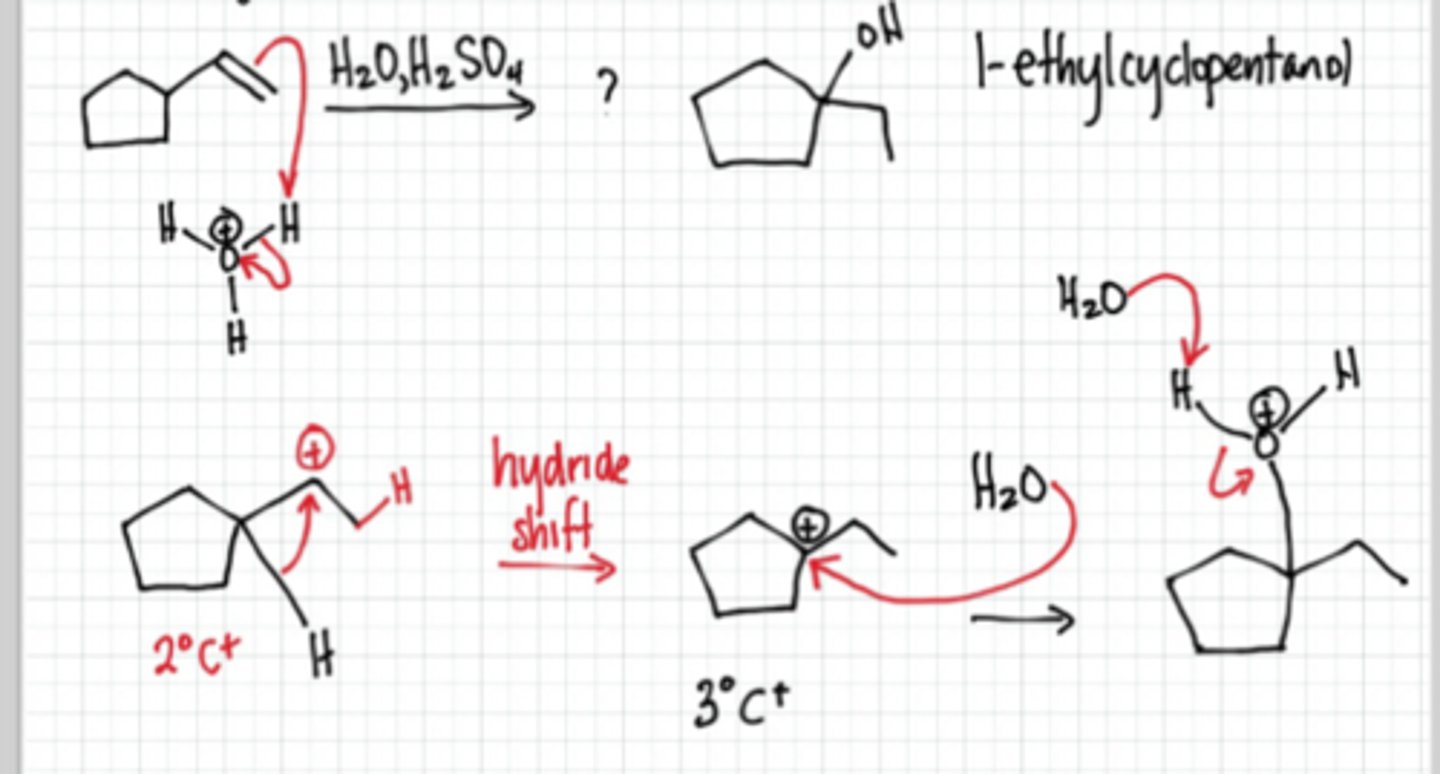 H₂O,H₂SO₄
?
OH
1-ethylcyclopentanol
H ⊕ H
O
H
H₂O
H ⊕ H
O
⊕
H
hydride
shift
H₂O
⊕
2°C⁺
H
3°C⁺